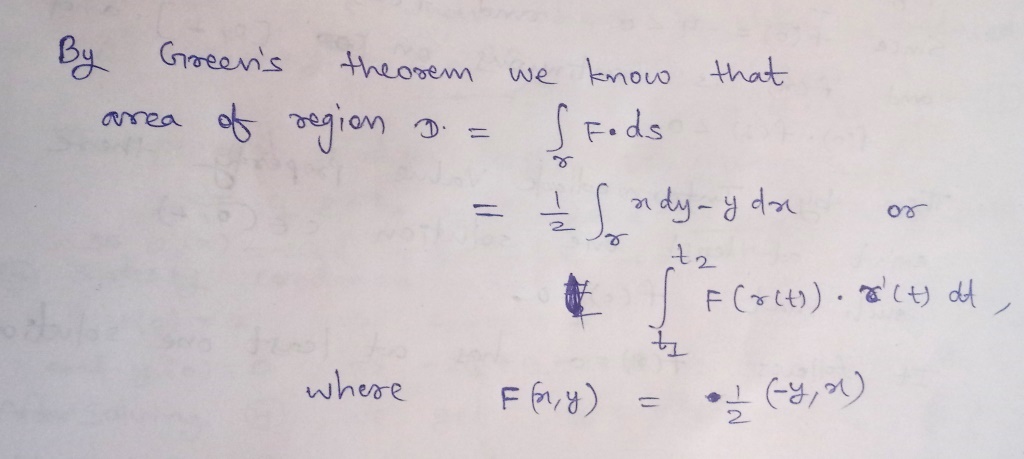 By Green's theorem we know that
area of region D. = ∫_r F.ds
= 1/2 ∫_r x dy - y dx or
∫_{t1}^{t2} F(r(t)). r'(t) dt,
where F(x,y) = 1/2 (-y, x)